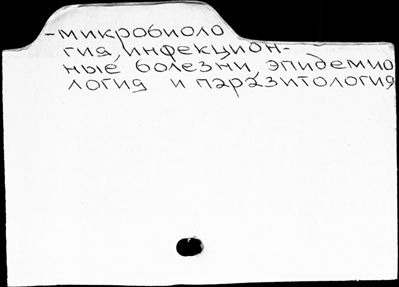 -микробиоло
гия, инфекцион-
ные болезни, эпидемио
логия и паразитология